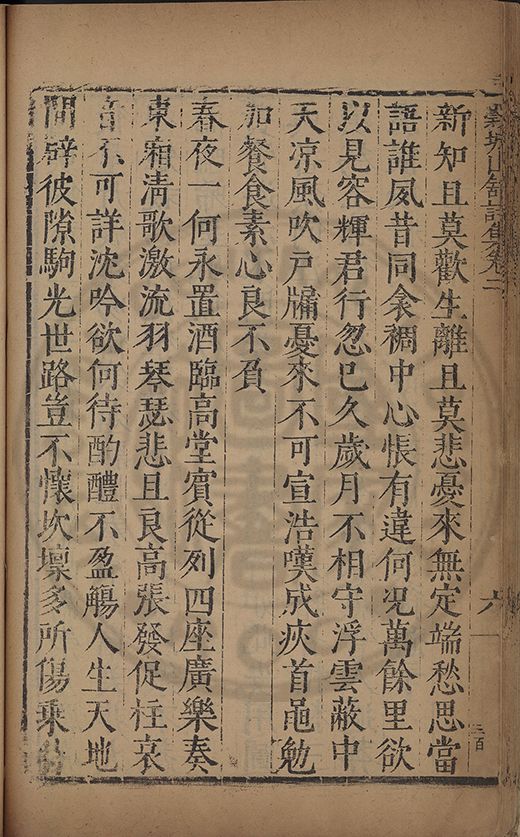 山館詩集卷二
六
三百
新知且莫歡生離且莫悲憂來無定端愁思當
語誰夙昔同衾裯中心悵有違何況萬餘里欲
以見容輝君行忽已久歲月不相守浮雲蔽中
天凉風吹戸牖憂來不可宣浩嘆成疢首黽勉
加餐食素心良不負
春夜一何永置酒臨高堂賓從列四座廣樂奏
東廂清歌激流羽琴瑟悲且良高張發促柱哀
音不可詳沈吟欲何待酌醴不盈觴人生天地
間辟彼隙駒光世路豈不懷坎壈多所傷乗